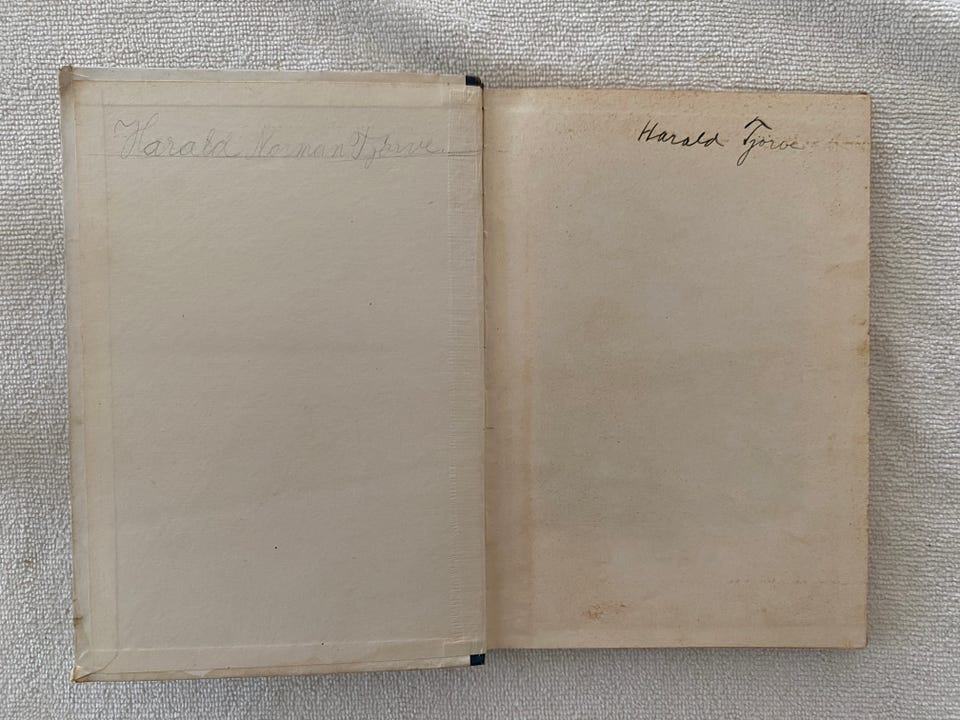 Harald Norman Tjorve.
Harald Tjorve